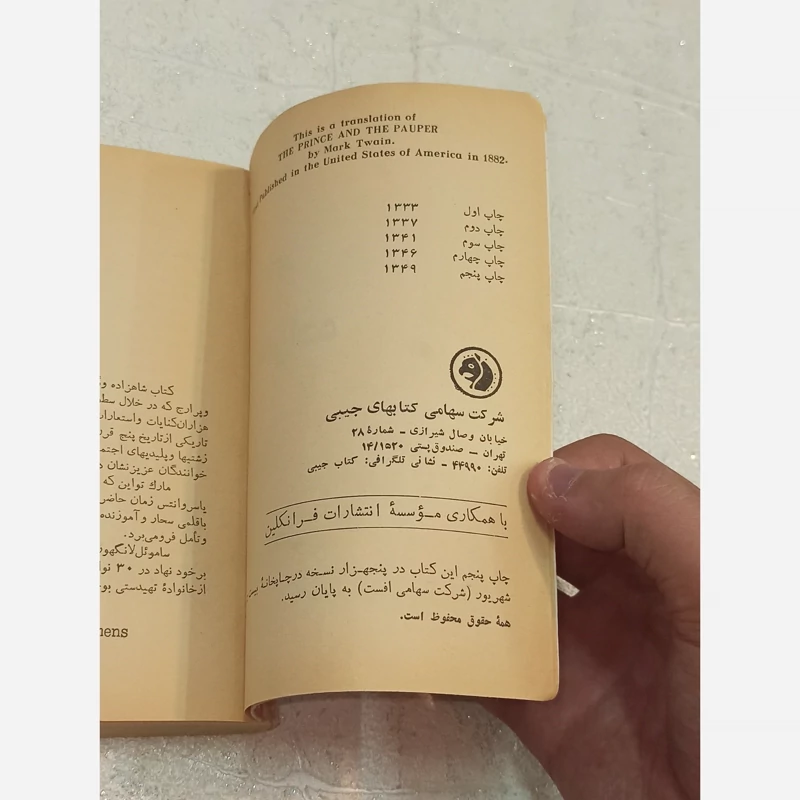 This is a translation of
THE PRINCE AND THE PAUPER
by Mark Twain.
Published in the United States of America in 1882.
چاپ اول ۱۳۳۳
چاپ دوم ۱۳۳۷
چاپ سوم ۱۳۴۱
چاپ چهارم ۱۳۴۶
چاپ پنجم ۱۳۴۹
شرکت سهامی کتابهای جیبی
خیابان وصال شیرازی – شمارهٔ ۲۸
تهران – صندوق‌پستی ۱۴/۱۵۲۰
تلفن: ۴۴۹۹۰ – نشانی تلگرافی: کتاب جیبی
با همکاری مؤسسهٔ انتشارات فرانکلین
چاپ پنجم این کتاب در پنجهزار نسخه درچاپخانهٔ
شهریور (شرکت سهامی افست) به پایان رسید.
همهٔ حقوق محفوظ است.
کتاب شاهزاده و
وپرارج که در خلال
هزاران‌کنایات واستعارات
تاریکی ازتاریخ پنج
زشتیها وپلیدیهای
خوانندگان عزیزنشان
مارك تواین که
یاسروانتس زمان حاضر
باقلمی سحار و آموزنده
وتأمل فرومی‌برد.
ساموئل‌لانگهورن
برخود نهاد در ۳۰
ازخانوادهٔ تهیدستی